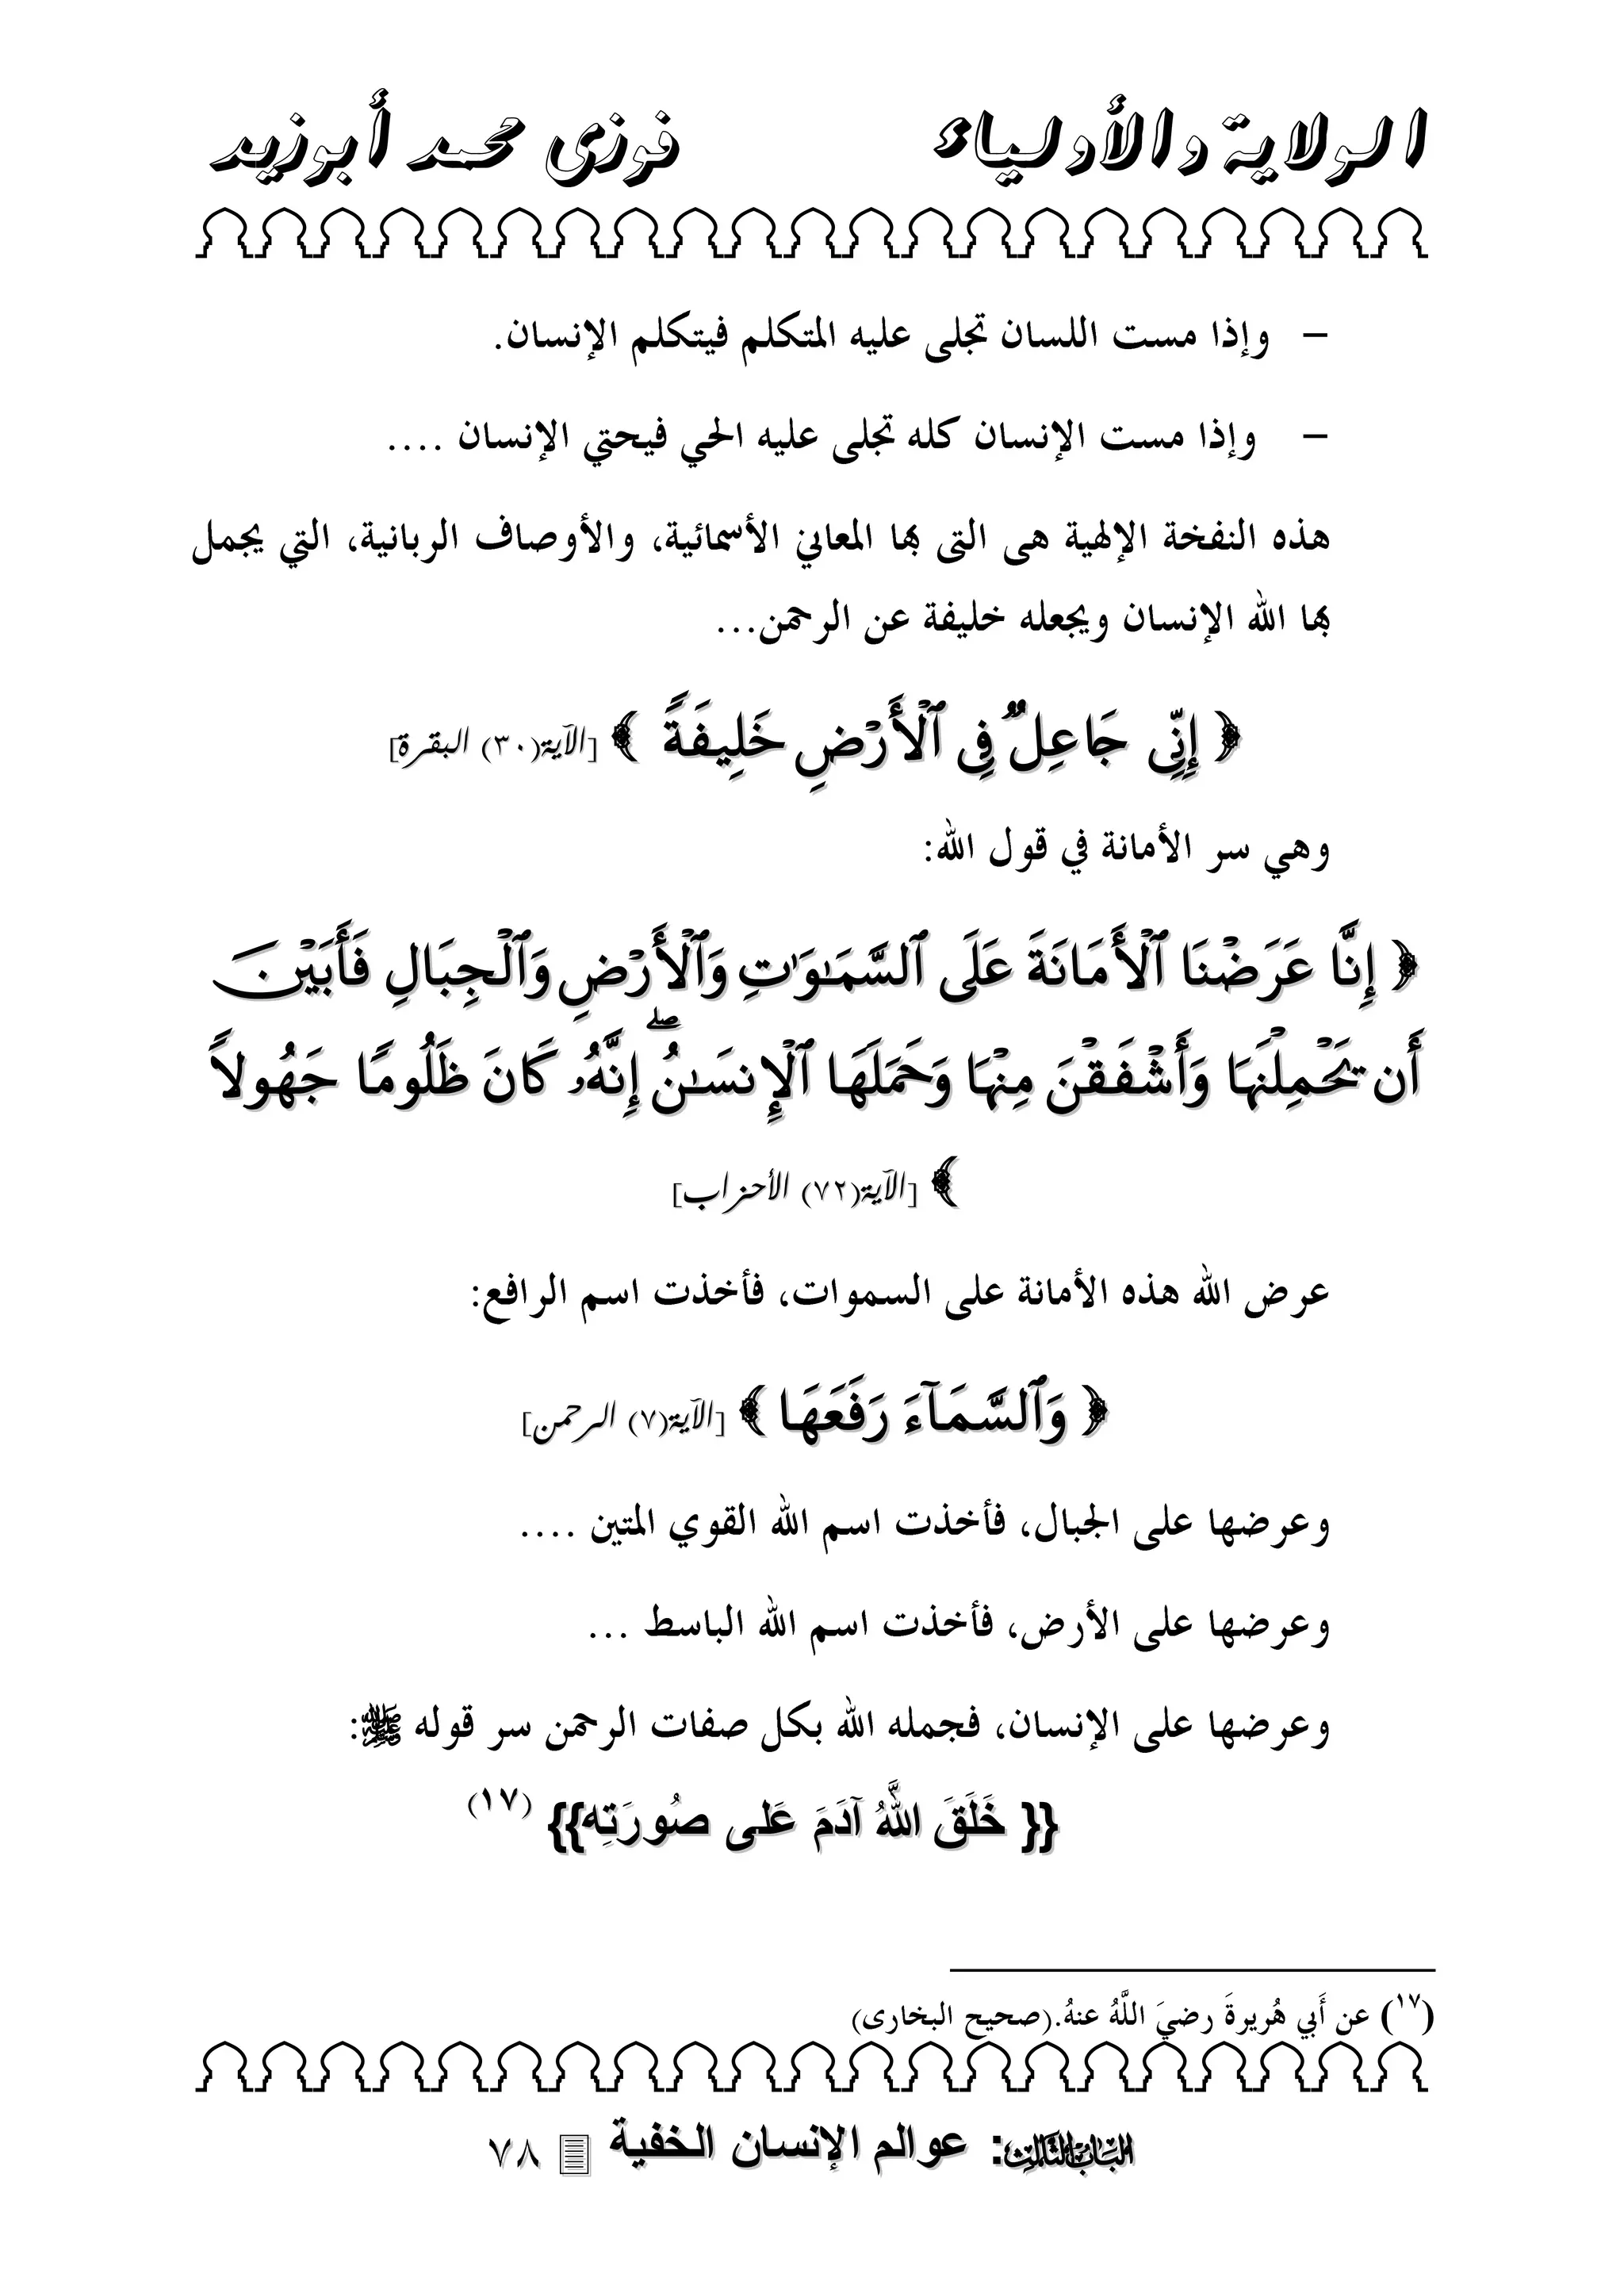 الولاية والأولياء فوزى محمد أبوزيد
- وإذا مست اللسان تجلى عليه المتكلم فيتكلم الإنسان.
- وإذا مست الإنسان كله تجلى عليه الحي فيحتي الإنسان ....
هذه النفخة الإلهية هى التى بها المعاني الأسمائية، والأوصاف الربانية، التي يجمل
بها الله الإنسان ويجعله خليفة عن الرحمن...
﴿ إِنِّى جَاعِلٌ فِى ٱلْأَرْضِ خَلِيفَةً ﴾ [الآية(٣٠) البقرة]
وهي سر الأمانة في قول الله:
﴿ إِنَّا عَرَضْنَا ٱلْأَمَانَةَ عَلَى ٱلسَّمَـٰوَٰتِ وَٱلْأَرْضِ وَٱلْجِبَالِ فَأَبَيْنَ
أَن يَحْمِلْنَهَا وَأَشْفَقْنَ مِنْهَا وَحَمَلَهَا ٱلْإِنسَـٰنُ ۖ إِنَّهُۥ كَانَ ظَلُومًا جَهُولًا
﴾ [الآية(٧٢) الأحزاب]
عرض الله هذه الأمانة على السموات، فأخذت اسم الرافع:
﴿ وَٱلسَّمَآءَ رَفَعَهَا ﴾ [الآية(٧) الرحمن]
وعرضها على الجبال، فأخذت اسم الله القوي المتين ....
وعرضها على الأرض، فأخذت اسم الله الباسط ...
وعرضها على الإنسان، فجمله الله بكل صفات الرحمن سر قوله ﷺ:
{{ خَلَقَ اللَّهُ آدَمَ عَلى صُورَتِه}} (١٧)
(١٧) عن أَبي هُريرةَ رضيَ اللَّهُ عنهُ.(صحيح البخارى)
الباب الثالث: عوالم الإنسان الخفية ٧٨